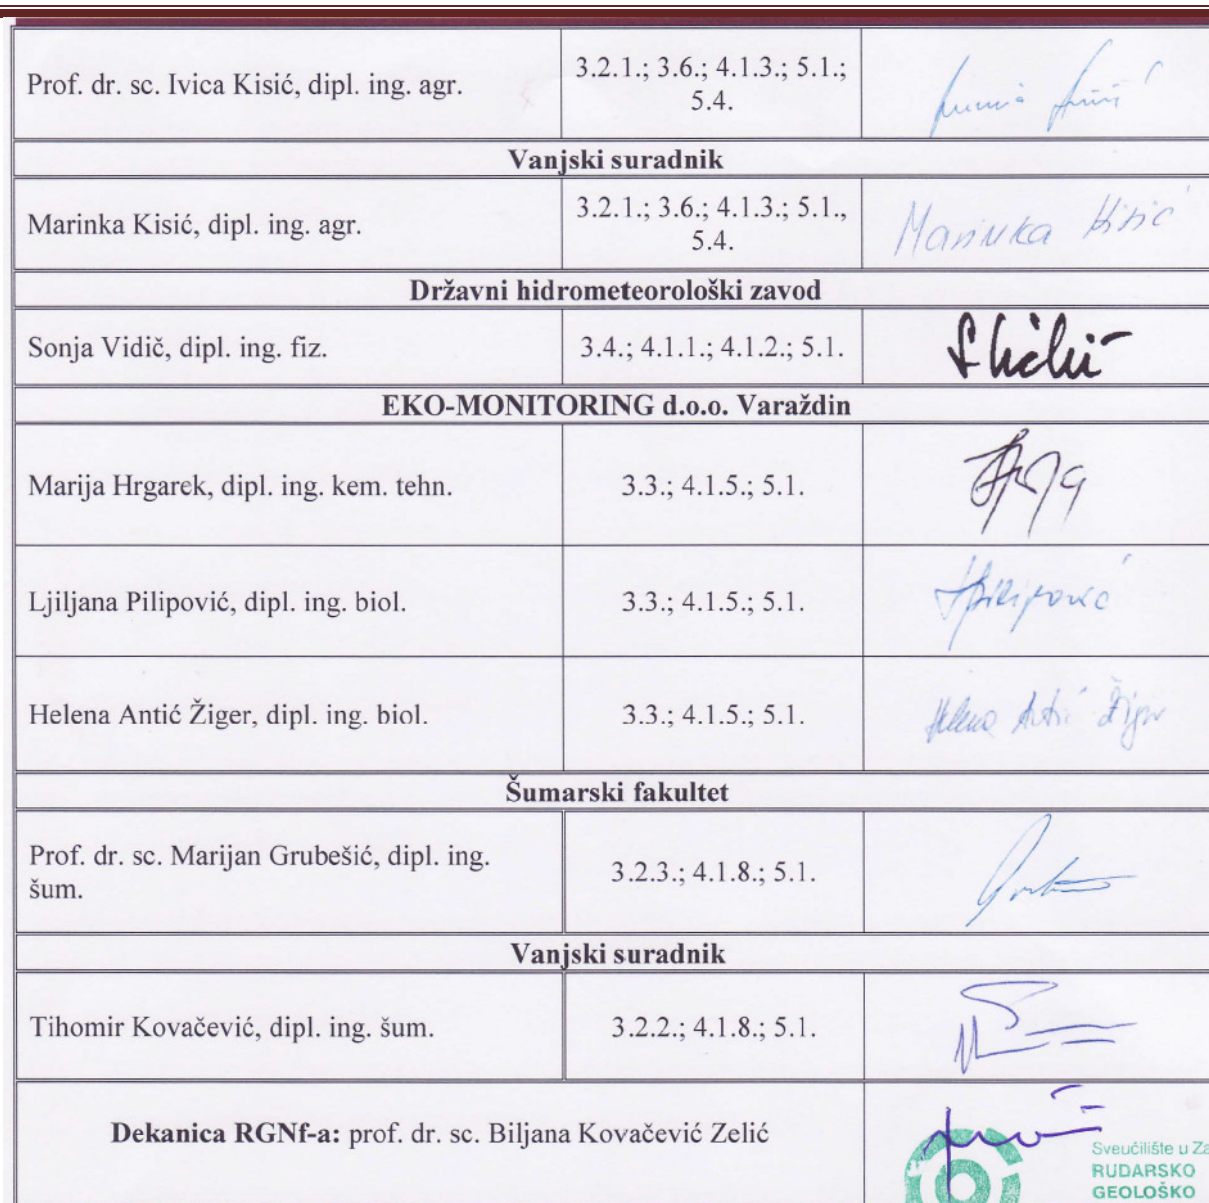 Prof. dr. sc. Ivica Kisić, dipl. ing. agr.
3.2.1.; 3.6.; 4.1.3.; 5.1.;
5.4.
Vanjski suradnik
Marinka Kisić, dipl. ing. agr.
3.2.1.; 3.6.; 4.1.3.; 5.1.,
5.4.
Marinka Kisić
Državni hidrometeorološki zavod
Sonja Vidič, dipl. ing. fiz.
3.4.; 4.1.1.; 4.1.2.; 5.1.
EKO-MONITORING d.o.o. Varaždin
Marija Hrgarek, dipl. ing. kem. tehn.
3.3.; 4.1.5.; 5.1.
Ljiljana Pilipović, dipl. ing. biol.
3.3.; 4.1.5.; 5.1.
Helena Antić Žiger, dipl. ing. biol.
3.3.; 4.1.5.; 5.1.
Helena Antić Žiger
Šumarski fakultet
Prof. dr. sc. Marijan Grubešić, dipl. ing.
šum.
3.2.3.; 4.1.8.; 5.1.
Vanjski suradnik
Tihomir Kovačević, dipl. ing. šum.
3.2.2.; 4.1.8.; 5.1.
Dekanica RGNf-a: prof. dr. sc. Biljana Kovačević Zelić
Sveučilište u Za
RUDARSKO
GEOLOŠKO